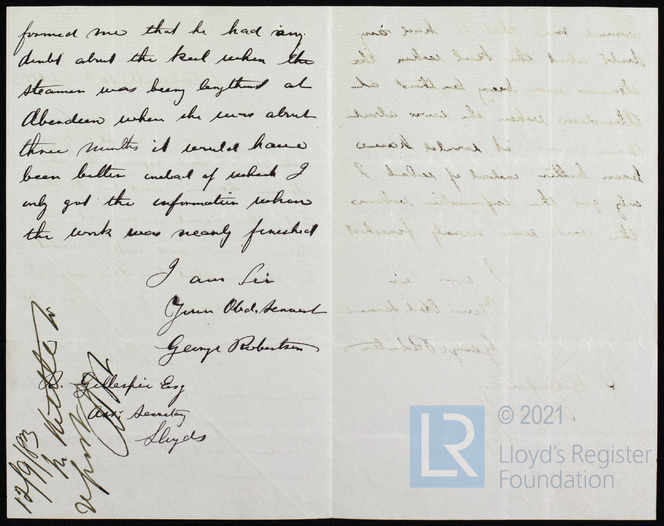 formed me that he had any
doubt about the keel when the
steamer was being lengthend at
Aberdeen when she was about
three months it would have
been better instead of which I
only got the information when
the work was nearly finished
I am Sir
Your Obd. Servant
George Robertson
Gillespie Esq
Assi Secretary
Lloyds
12/9/83
© 2021
LR
Lloyd's Register
Foundation